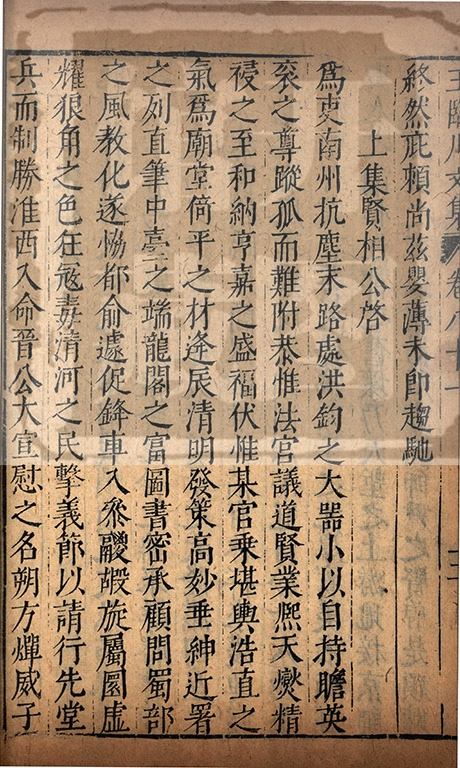 王臨川文集 卷八十一 三
終然庇賴尚茲嬰薄未即趨馳
上集賢相公啓
為吏南州抗塵末路處洪鈞之大器小以自持瞻英
袞之尊蹤孤而難附恭惟法官議道賢業熙天燮精
祲之至和納亨嘉之盛福伏惟某官乗堪輿浩直之
氣為廟堂倚平之材逢辰清明發策高妙垂紳近署
之列直筆中臺之端龍閣之富圖書密承顧問蜀部
之風教化遂恊都俞遽促鋒車入叅殿旋屬圜虛
耀狼角之色狂宼毒清河之民擊義節以請行先堂
兵而制勝淮西入命晉公大宣慰之名朔方燀威子